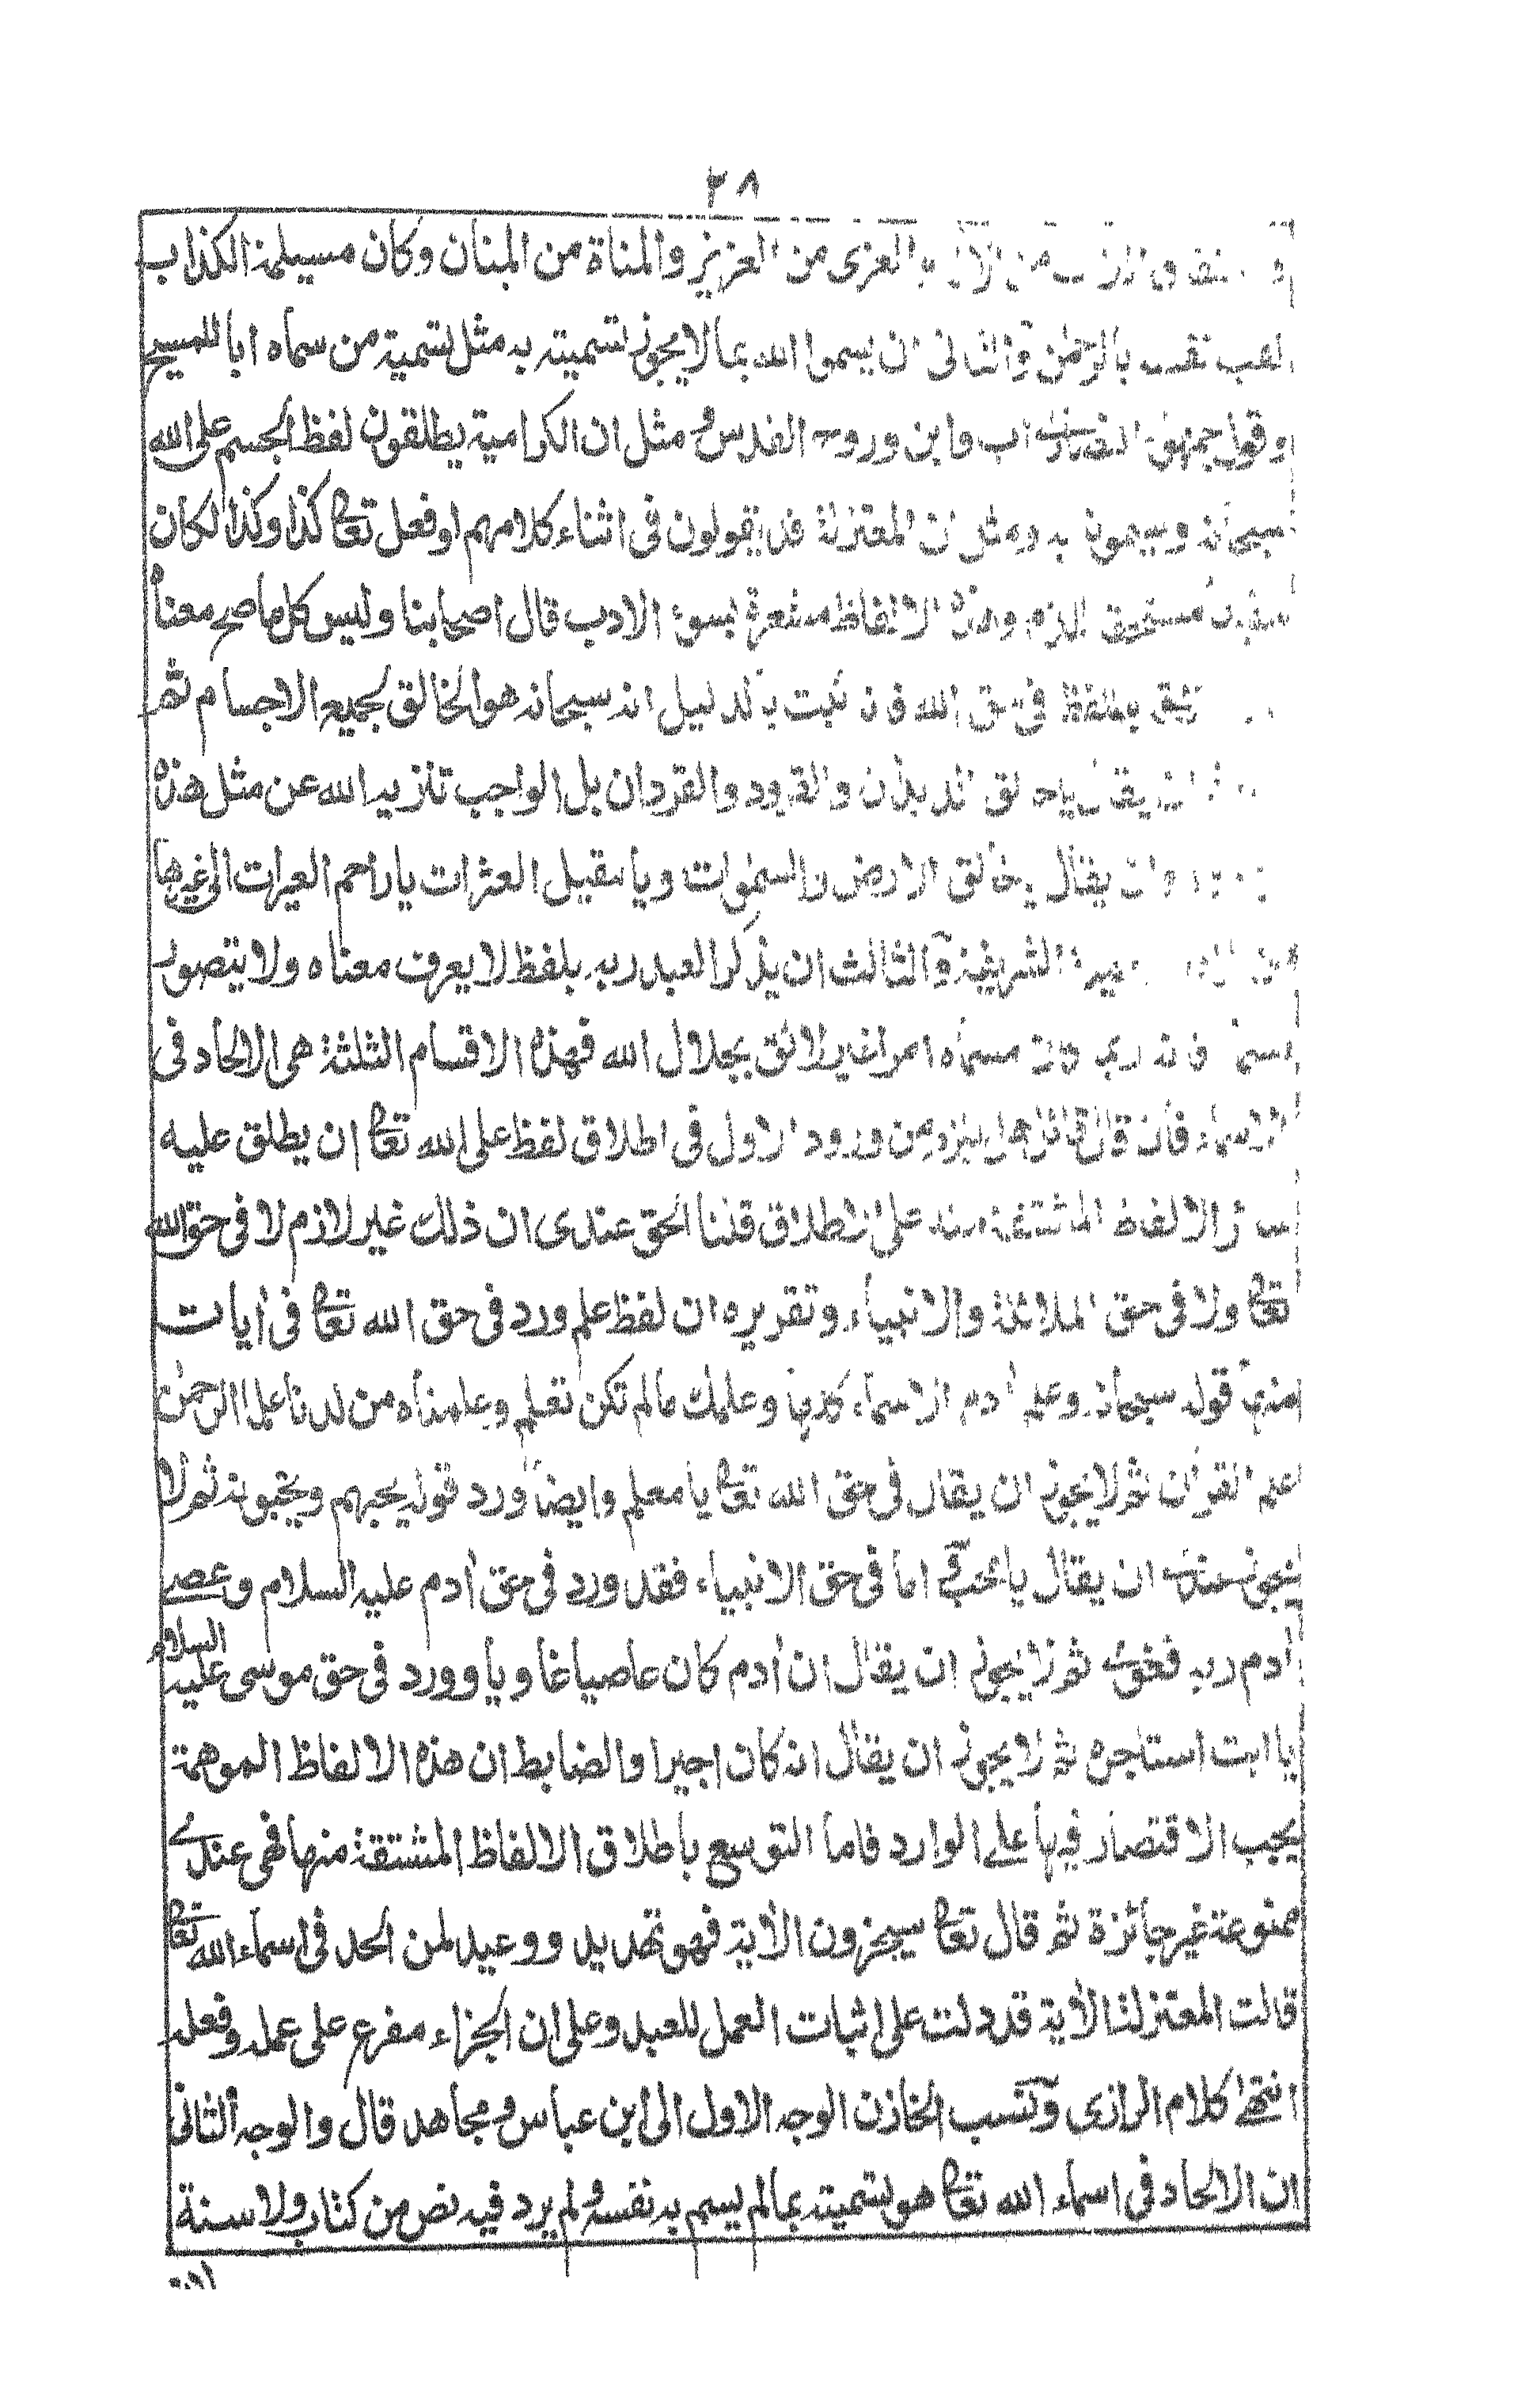 ٣٨
العزى من العزيز والمناة من المنان وكان مسيلمة الكذاب
بالرحمن والثانى ان يسموا الله بما لا يجوز تسميته به مثل تسمية من سماه ابا للمسيح
وقول جمهور النصارى اب وابن وروح القدس ومثل ان الكرامية يطلقون لفظ الجسم على الله
سبحانه ويسمونه به ومثل ان المعتزلة قد يقولون فى اثناء كلامهم لو فعل تعا كذا وكذا لكان
سفيها مستحق الذم وهذه الالفاظ مشعرة بسوء الادب قال اصحابنا وليس كل ما صح معناه
اللفظ فى حق الله فانه ثبت بالدليل انه سبحانه هو الخالق لجميع الاجسام ثم
ان يقال يا خالق الديدان والقرود والقردان بل الواجب تنزيه الله عن مثل هذه
وان يقال يا خالق الارض والسموات ويا مقيل العثرات يا راحم العبرات الى غيرها
الشريفة والثالث ان يذكر العبد ربه بلفظ لا يعرف معناه ولا يتصور
مسماه فانه ربما كان مسماه امرا غير لائق بجلال الله فهذه الاقسام الثلثة هى الالحاد فى
الاسماء فان قال قائل هل يلزم من ورود الاول فى اطلاق لفظ على الله تعا ان يطلق عليه
سائر الالفاظ المشتقة منه على الاطلاق قلنا الحق عندى ان ذلك غير لازم لا فى حق الله
تعا ولا فى حق الملائكة والانبياء وتقريره ان لفظ علم ورد فى حق الله تعا فى أيات
منها قوله سبحانه وعلم أدم الاسماء كلها وعلمك مالم تكن تعلم وعلمناه من لدنا علما الرحمن
علم القرأن ثم لا يجوز ان يقال فى حق الله تعا يا معلم وايضا ورد قوله يحبهم ويحبونه ثم لا
يجوز عندى ان يقال يا محب اما فى حق الانبياء فقد ورد فى حق أدم عليه السلام وعصى
أدم ربه فغوى ثم لا يجوز ان يقال ان أدم كان عاصيا غاويا وورد فى حق موسى عليه السلام
يا ابت استاجره ثم لا يجوز ان يقال انه كان اجيرا والضابط ان هذه الالفاظ الموهمة
يجب الاقتصار فيها على الوارد فاما التوسع باطلاق الالفاظ المشتقة منها فهى عندى
ممنوعة غير جائزة ثم قال تعا سيجزون الأية فهو تهديد ووعيد لمن الحد فى اسماء الله تعا
قالت المعتزلة الأية قد دلت على اثبات العمل للعبد وعلى ان الجزاء مفرع على عمله وفعله
انتهى كلام الرازى ونسب الخازن الوجه الاول الى ابن عباس ومجاهد قال والوجه الثانى
ان الالحاد فى اسماء الله تعا هو تسميته بمالم يسم به نفسه ولم يرد فيه نص من كتاب ولا سنة